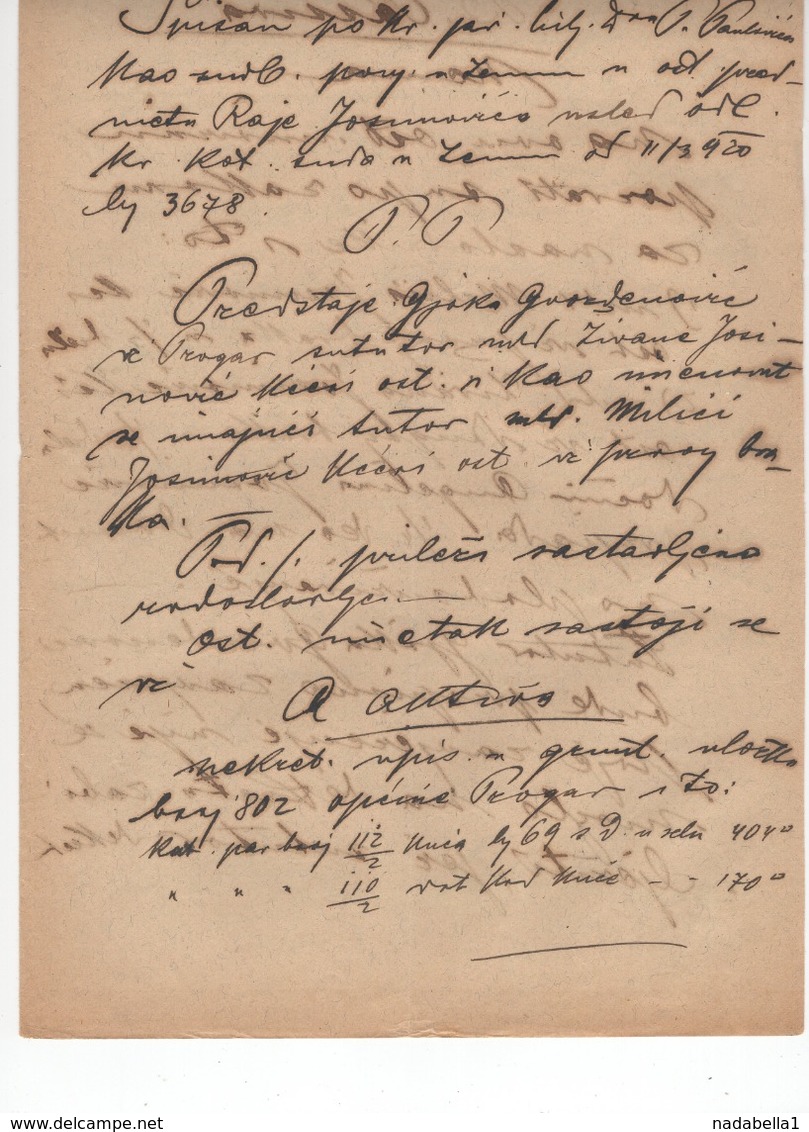 Spisan po kr. jav. bilj. Dru P. Pavloviću
kao sudb. povj. u Zemunu u ost. pred-
mietu Raje Josimovića usled odl.
kr. kot. suda u Zemunu od 11/3 920
bq 3678.
P. P.
Predstaje Gjoka Gvozdenović
iz Progar sututor mld Živane Josi-
nović kćeri ost. i kao imenovat
se imajući tutor mld. Milici
Josimović kćeri ost iz prvog bra-
ka.
Pod ./. prileži sastavljeno
rodoslovlje.
Ost. imetak sastoji se
iz
A aktiva
nekret. upis. u grunt. uložku
broj 802 općine Progar i to:
Kat. par broj 112/2 kuća bq 69 s D. u selu 404°
" " " 110/2 vrt kod kuće - - 170°
nadabella1